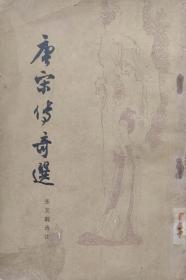 唐宋传奇選
张友鹤选注